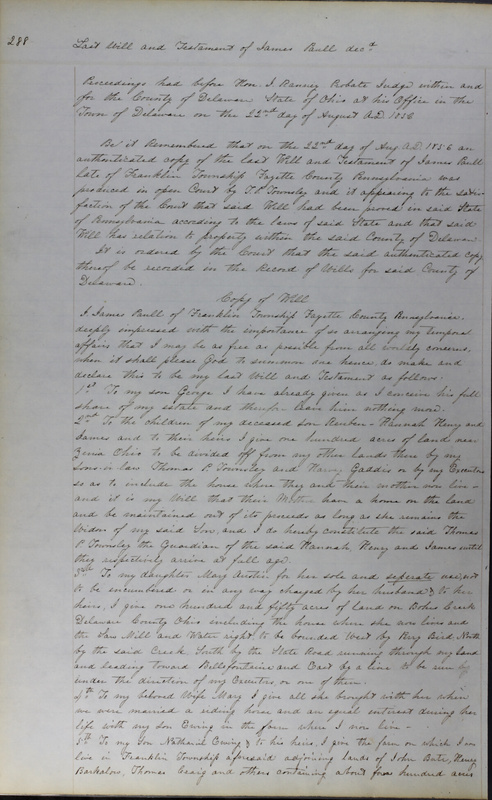 288
Last Will and Testament of James Paull decd
Proceedings had before Hon. J. Ranney Probate Judge within and
for the County of Delaware State of Ohio at his Office in the
Town of Delaware on the 22nd day of August A.D. 1856
Be it Remembered that on the 22nd day of Aug A.D. 1856 an
authenticated copy of the last Will and Testament of James Paull
late of Franklin Township Fayette County Pennsylvania was
produced in open Court by T.P. Townsley and it appearing to the satis
faction of the Court that said Will had been proved in said State
of Pennsylvania according to the laws of said State and that said
Will has relation to property within the said County of Delaware
It is ordered by the Court that the said authenticated copy
thereof be recorded in the Record of Wills for said County of
Delaware.
Copy of Will
I, James Paull of Franklin Township Fayette County Pennsylvania.
deeply impressed with the importance of so arranging my temporal
affairs that I may be as free as possible from all worldly concerns,
when it shall please God to summon me hence, do make and
declare this to be my last Will and Testament as follows.
1st To my son George I have already given as I conceive his full
share of my estate and therefore leave him nothing more.
2nd To the children of my deceased son Reuben - Hannah Henry and
James and to their heirs I give one hundred acres of land near
Zenia Ohio to be divided off from my other lands there by my
sons-in-law Thomas P. Townsley and Henry Gaddis or by my Executors
so as to include the house where they and their mother now live -
and it is my Will that their Mother have a home on the land
and be maintained out of its proceeds as long as she remains the
Widow of my said Son, and I do hereby constitute the said Thomas
P. Townsley the Guardian of the said Hannah, Henry and James until
they respectively arrive at full age.
3rd To my daughter Mary Austin for her sole and seperate use, not
to be encumbered or in any way charged by her husband & to her
heirs, I give one hundred and fifty acres of land on Bokes Creek
Delaware County Ohio including the house where she now lives and
the Saw Mill and Water right, to be bounded West by Bird North
by the said Creek South by the State Road running through my land
and leading toward Bellefontaine and East by a line to be run by
under the direction of my Executors, or one of them.
4th To my beloved Wife Mary I give all she brought with her when
we were married a riding horse and an equal interest during her
life with my son Ewing in the farm where I now live -
5th To my Son Nathaniel Ewing & to his heirs, I give the farm on which I now
live in Franklin Township aforesaid adjoining lands of John Bute, Henry
Barkalow, Thomas Craig and others containing about four hundred acres